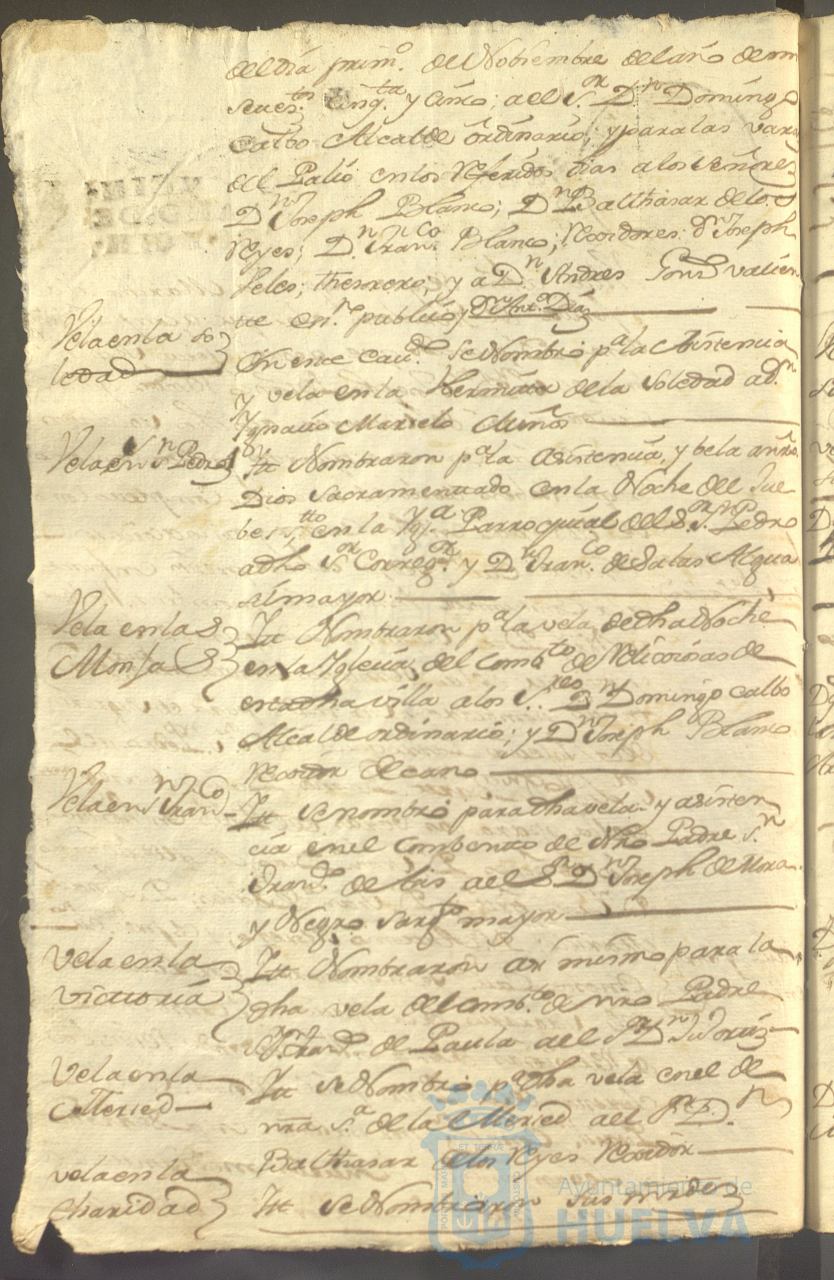 del Día prim.º de Nobiembre del año de
setes.tos Cinq.ta y Cinco; a el S.or D.n Domingo
Calbo Alcalde ordinario; y para las varas
del Palio en los referidos dias a los señores
D.n Joseph Blanco; D.n Balthasar de los
Reyes; D.n Fran.co Blanco; Rexidores; D.n Joseph
Feles; thesorero; y a D.n Andres
te en.no publico y
Vela en la So
ledad
En este Cav.do se Nombro p.a la Asistencia
y vela en la Hermita de la Soledad a D.n
Ygnacio Marzelo
Vela en S.n Pedro
Itt Nombraron p.a la asistencia, y bela a nro
Dios Sacramentado en la Noche del Jue
bes s.tto en la Yg.a Parroquial del S.or S.n Pedro
a dho S.or Correg.or y D.n Fran.co de Salas Algua
zil mayor
Vela en las
Monjas
Itt Nombraron p.a la vela de dha Noche
en la Yglecia del Comb.to de Relixiosas de
esta dha villa a los S.res D.n Domingo Calbo
Alcalde ordinario; y D.n Joseph Blanco
Rexidor decano
Vela en S.n Fran.co
Itt se nombro para dha vela y asisten
cia en el Combento de Nro Padre S.n
Fran.co de Asis a el S.or D.n Joseph de Mora
y Negro Sarg.to mayor
Vela en la
Victoria
Itt Nombraron asi mismo para la
dha vela del Comb.to de nro Padre
S.n Fran.co de Paula a el S.or D.n
Vela en la
Merced
Itt se Nombro p.a dha vela en el de
nra S.a de la Merced a el S.or D.n
Balthasar de los Reyes Rexidor
vela en la
Charidad
Itt se Nombraron
Ayuntamiento de
HUELVA